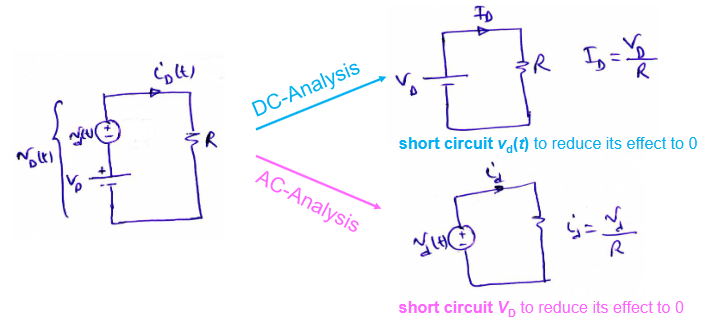 i_D(t)
v_D(t)
v_d(t)
+
-
V_D
+
R
DC-Analysis
I_D
V_D
R
I_D = V_D / R
short circuit v_d(t) to reduce its effect to 0
AC-Analysis
i_d
v_d(t)
+
-
i_d = v_d / R
short circuit V_D to reduce its effect to 0